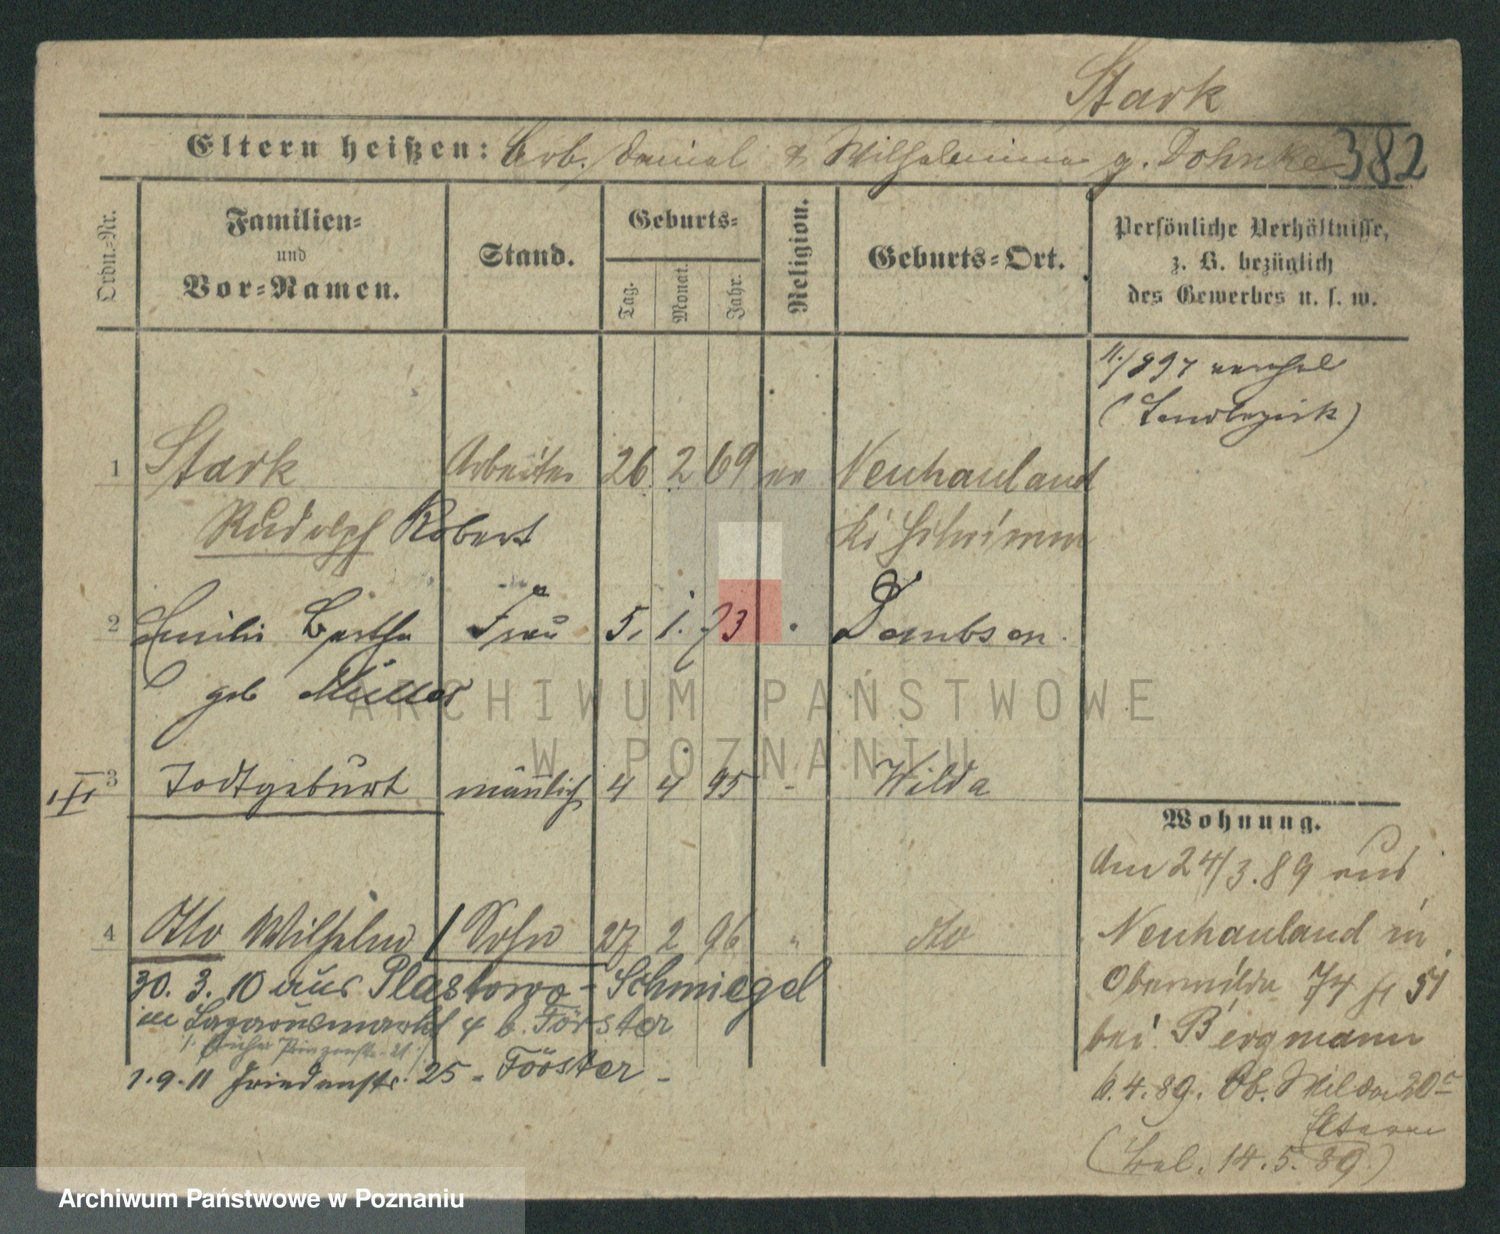 Stark
Eltern heißen: Arb. Daniel & Wilhelmine g. Dohnke 382
Ordn.-Nr.
Familien-
und
Vor-Namen.
Stand.
Geburts-
Tag.
Monat.
Jahr.
Religion.
Geburts-Ort.
Persönliche Verhältnisse,
z. B. bezüglich
des Gewerbes u. s. w.
(Landbezirk)
1 Stark Arbeiter 26. 2 69 ev Neuhauland
Rudolph Robert Kr Schrimm
2 Emilie Bertha Frau 5. 1. 73 Dembsen.
geb Müller
3 Todtgeburt männlich 4 4 95 - Wilda
4 Otto Wilhelm / Sohn 27 2 96 " dto
30. 3. 10 aus Plastowo - Schmiegel
in Lazarusmarkt 4 b. Förster
1.9.11 Friedenstr. 25 - Förster -
Wohnung.
Am 24/3.89 aus
Neuhauland in
Oberwilda 74 51
bei Bergmann
6.4.89. Ob. Wilda 20
Eltern
14.5.89.)
ARCHIWUM PAŃSTWOWE
W POZNANIU
Archiwum Państwowe w Poznaniu